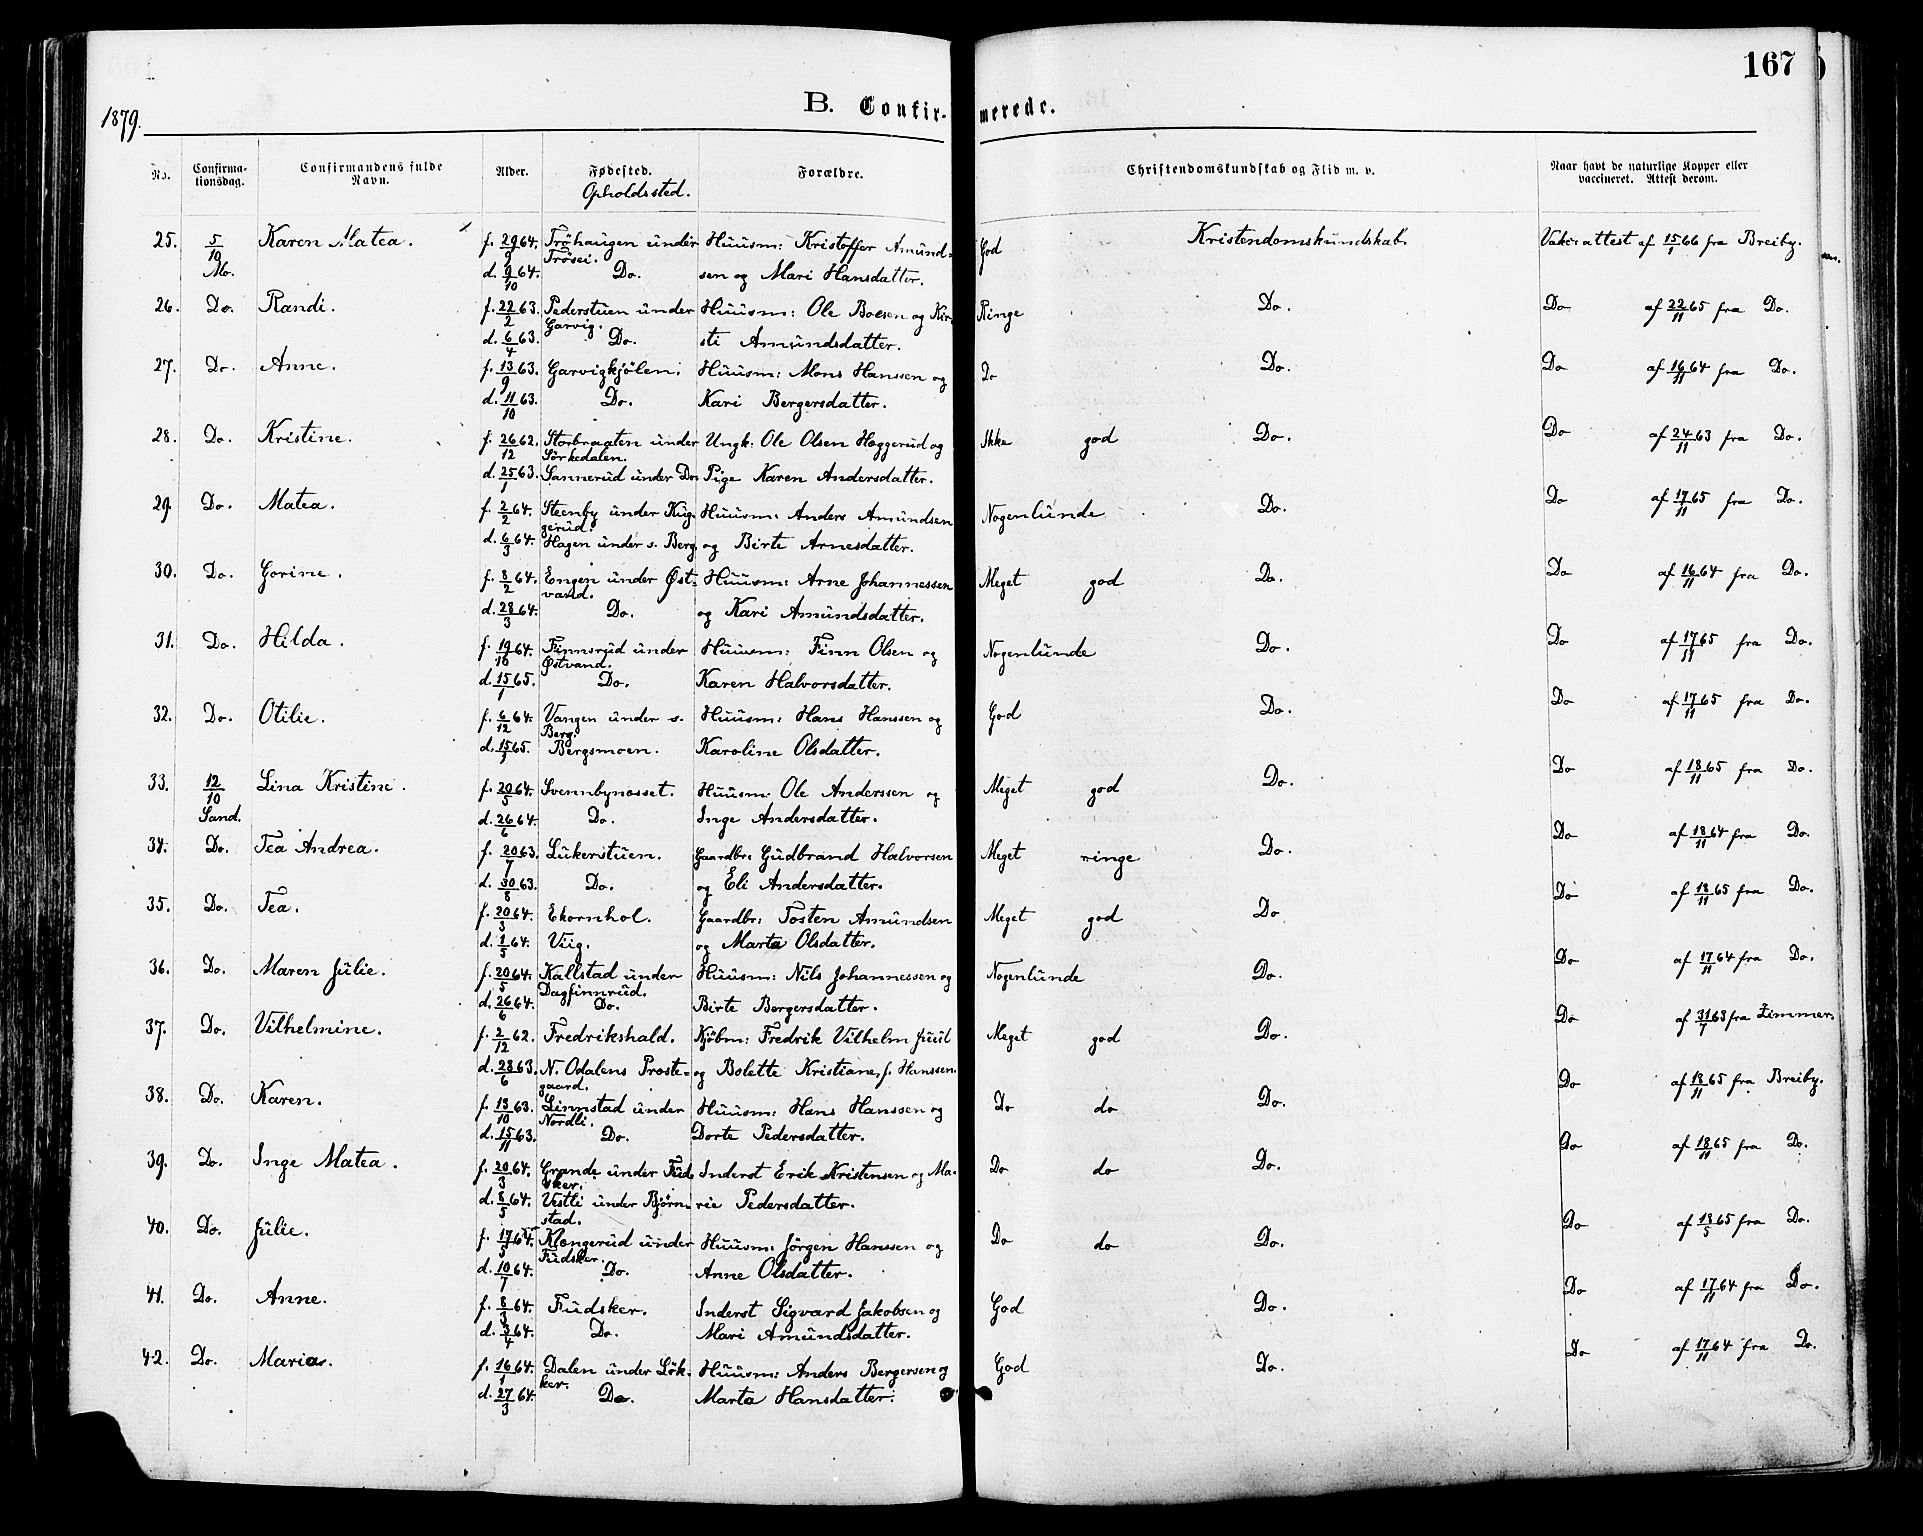 167
1879.
B. Confirmerede.
No. Confirmationsdag. Confirmandens fulde Navn. Alder. Fødested. Opholdssted. Forældre. Christendomskundskab og Flid m. v. Naar havt de naturlige Kopper eller vaccineret. Attest derom.
25. 5/10 Karen Matea. f. 29/9 64. Tröhaugen under Huusm: Kristoffer Amund- God Kristendomskundskab. Vakc: attest af 15/1 66 fra Breiby.
Trösei.
Mo. d. 9/10 64. Do. sen og Mari Hansdatter.
26. Do. Randi. f. 22/2 63. Pederstuen under Huusm: Ole Boesen og Kir- Ringe Do. Do af 22/11 65 fra Do.
Garvig.
d. 6/4 63. Do. sti Amundsdatter.
27. Do. Anne. f. 13/9 63. Garvigkjölen. Huusm: Mons Hanssen og Do Do. Do af 16/11 64 fra Do.
d. 11/10 63. Do. Kari Bergersdatter.
28. Do. Kristine. f. 26/12 62. Storbraaten under Ungk: Ole Olsen Hoggerud og Ikke god Do. Do af 24/11 63 fra Do.
Sörkedalen.
d. 25/1 63. Sannerud under Do. Pige Karen Andersdatter.
29. Do. Matea. f. 2/2 64. Steenby under Kug- Huusm: Anders Amundsen Nogenlunde Do. Do af 17/11 65 fra Do.
gerud.
d. 6/3 64. Hagen under s. Berg. og Birte Arnesdatter.
30. Do. Gorine. f. 8/2 64. Engen under Øst- Huusm: Arne Johannessen Meget god Do. Do af 16/11 64 fra Do.
vand.
d. 28/3 64. Do. og Kari Amundsdatter.
31. Do. Hilda. f. 19/10 64. Finnsrud under Huusm: Finn Olsen og Nogenlunde Do. Do af 17/11 65 fra Do.
Østvand.
d. 15/1 65. Do. Karen Halvorsdatter.
32. Do. Otilie. f. 6/12 64. Vangen under s. Huusm: Hans Hanssen og God Do. Do af 17/11 65 fra Do.
Berg.
d. 15/1 65. Bergsmoen. Karoline Olsdatter.
33. 12/10 Lina Kristine. f. 20/5 64. Svennbynesset. Huusm: Ole Anderssen og Meget god Do. Do af 18/11 65 fra Do.
Sand. d. 26/6 64. Do. Inge Andersdatter.
34. Do. Tea Andrea. f. 20/7 63. Lukerstuen. Gaardbr: Gudbrand Halvorsen Meget ringe Do. Do af 18/11 64 fra Do.
d. 30/8 63. Do. og Eli Andersdatter.
35. Do. Tea. f. 20/3 64. Ekornhol. Gaardbr: Tosten Amundsen Meget god Do Do af 18/11 65 fra Do.
d. 1/5 64. Viig. og Marta Olsdatter.
36. Do. Maren Julie. f. 20/5 64. Kallstad under Huusm: Nils Johannessen og Nogenlunde Do. Do af 17/11 64 fra Do.
Dagfinnrud.
d. 26/6 64. Do. Birte Bergersdatter.
37. Do. Vilhelmine. f. 2/12 62. Fredrikshald. Kjöbm: Fredrik Vilhelm Juul Meget god Do. Do af 31/7 63 fra Zimmer.
d. 28/6 63. N. Odalens Preste- og Bolette Kristiane, f. Hanssen.
gaard.
38. Do. Karen. f. 13/10 63. Linnstad under Huusm: Hans Hanssen og Do do Do. Do af 18/11 65 fra Breiby.
Nordli.
d. 15/11 63. Do. Dorte Pedersdatter.
39. Do. Inge Matea. f. 20/3 64. Grande under Fud- Inderst Erik Kristensen og Ma- Do do Do. Do af 18/11 65 fra Do.
sker.
d. 8/5 64. Vestli under Björn- rie Pedersdatter.
stad.
40. Do. Julie. f. 17/5 64. Klongerud under Huusm: Jörgen Hanssen og Do do Do. Do af 18/5 65 fra Do.
Fudsker.
d. 10/7 64. Do. Anne Olsdatter.
41. Do. Anne. f. 8/3 64. Fudsker. Inderst Sigvard Jakobsen og God Do. Do af 17/11 64 fra Do.
d. 3/4 64. Do. Mari Amundsdatter.
42. Do. Maria. f. 16/1 64. Dalen under Lök- Huusm: Anders Bergersen og God Do. Do af 17/11 64 fra Do.
ker.
d. 27/3 64. Do. Marta Hansdatter.